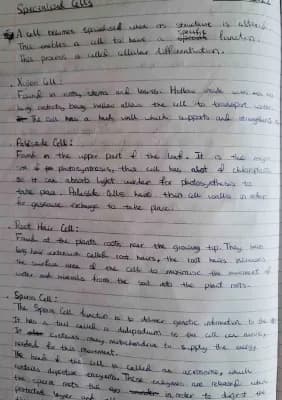 Specialised Cells
A cell becomes specialised when its structure is altered
This enables a cell to have a specific function.
This process is called cellular differentiation.
. Xylem Cell:
Found in roots, stems and leaves. Hollow inside
being hollow allow the cell to transport water.
The cell has a thick wall which supports and strengthens
. Palisade Cell:
Found in the upper part of the leaf. It is the
of photosynthesis, this cell has alot of chloroplasts
so it can absorb light for photosynthesis to
take place. Palisade Cells have thin cell walls in order
for gaseous exchange to take place.
. Root Hair Cell:
Found at the plants roots near the growing tip. They have
long hair called root hairs, the root hairs increases
the surface area of the cell to maximise the movement of
water and minerals from the soil into the plant roots.
. Sperm Cell:
The Sperm Cell function is to deliver genetic information to the
It has a tail called a so the cell can
It contains many mitochondria to supply the energy
needed for this movement.
The head of the cell is called an acrosome, which
contains digestive enzymes. These enzymes are released when
the sperm meets the egg in order to digest the
protective layer and